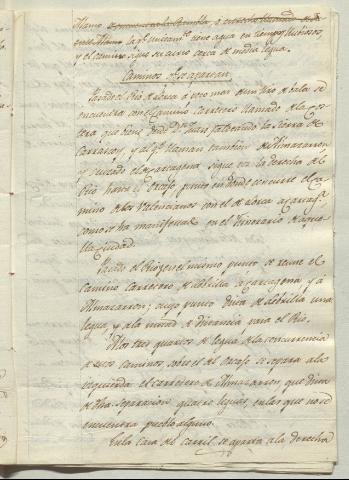 llano
la qe. unicamte. tiene agua en tiempos lluviosos,
y el camino sigue su curso cerca de media legua.
Caminos qe. se aparan.
Pasado el Rio de Lorca á poco mas de un tiro de bala se
encuentra con el camino carretero llamado de la Co
tera que viene desde Dn. Juan faldeando la Sierra de
Carrascoy, y al qe. llaman tambien de Almazarron
y cruzado el de Cartagena sigue por la derecha del
Rio hasta el punto en donde concurre el ca
mino de los Valencianos con el de Lorca a Cartaga.
como se ha manifestado en el Itinerario de aque
lla Ciudad.
Pasado el Rio y en el mismo punto se reune el
camino carretero de Librilla á Cartagena y á
Almazarron; cuyo punto dista de Librilla una
legua, y a la mitad de distancia pasa el Rio.
A los tres quartos de legua de la concurrencia
de esos caminos, sobre el de se separa a la
izquierda el carretero de Almazarron, que dista
de dha. separacion quatro leguas, en las que no se
encuentra pueblo alguno.
En la Casa de Carril, se aparta a la derecha